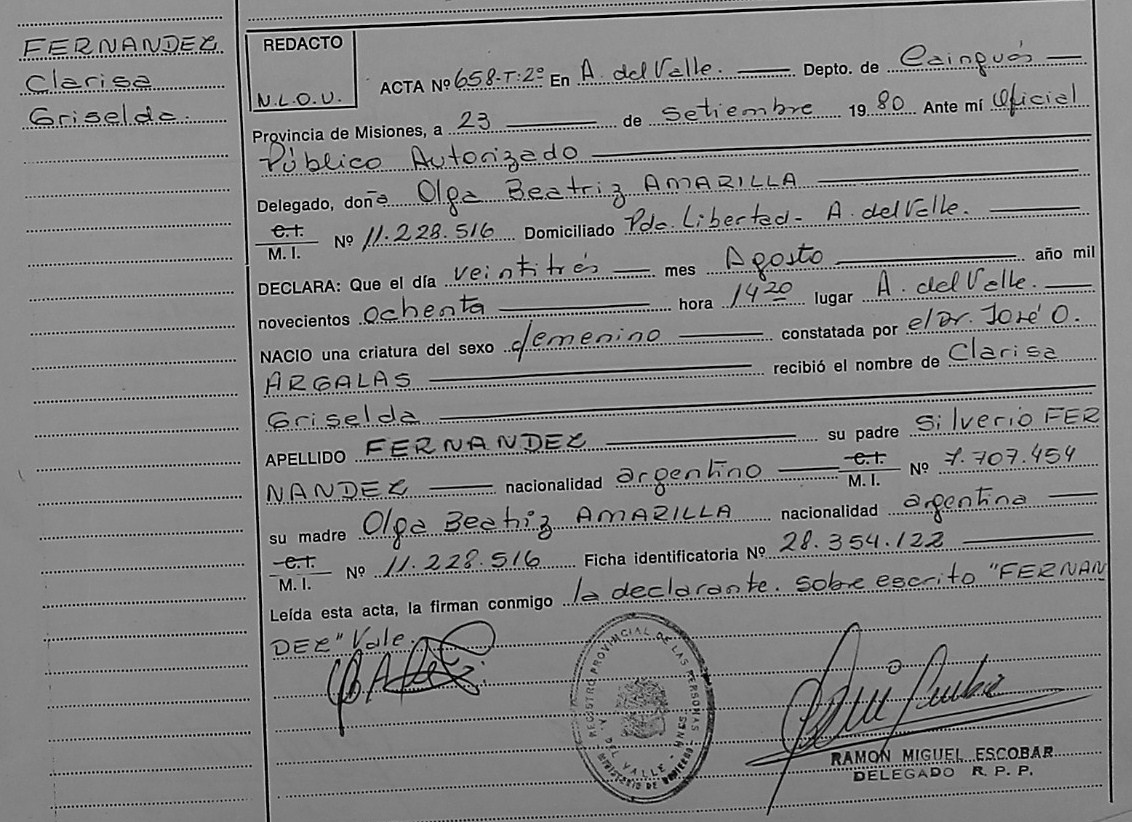 FERNANDEZ
Clarisa
Griselda.
REDACTO
N.L.O.V.
ACTA Nº 658-T:2º En A. del Valle. Depto. de Cainguás
Provincia de Misiones, a 23 de Setiembre 19 80 Ante mí Oficial
Público Autorizado
Delegado, doña Olga Beatriz AMARILLA
C.I.
M. I. Nº 11.228.516 Domiciliado Pde. Libertad - A. del Valle.
DECLARA: Que el día veintitrés mes Agosto año mil
novecientos ochenta hora 14 20 lugar A. del Valle.
NACIO una criatura del sexo femenino constatada por el Dr. José O.
ARGALAS recibió el nombre de Clarisa
Griselda
APELLIDO FERNANDEZ su padre Silverio FER
NANDEZ nacionalidad argentino C.I. M. I. Nº 7.707.454
su madre Olga Beatriz AMARILLA nacionalidad argentina
C.I.
M. I. Nº 11.228.516 Ficha identificatoria Nº 28.354.122
Leída esta acta, la firman conmigo la declarante. sobre escrito "FERNAN
DEZ" Vale.
REGISTRO PROVINCIAL DE LAS PERSONAS
DEL VALLE
MINISTERIO DE GOBIERNO
RAMON MIGUEL ESCOBAR
DELEGADO R. P. P.